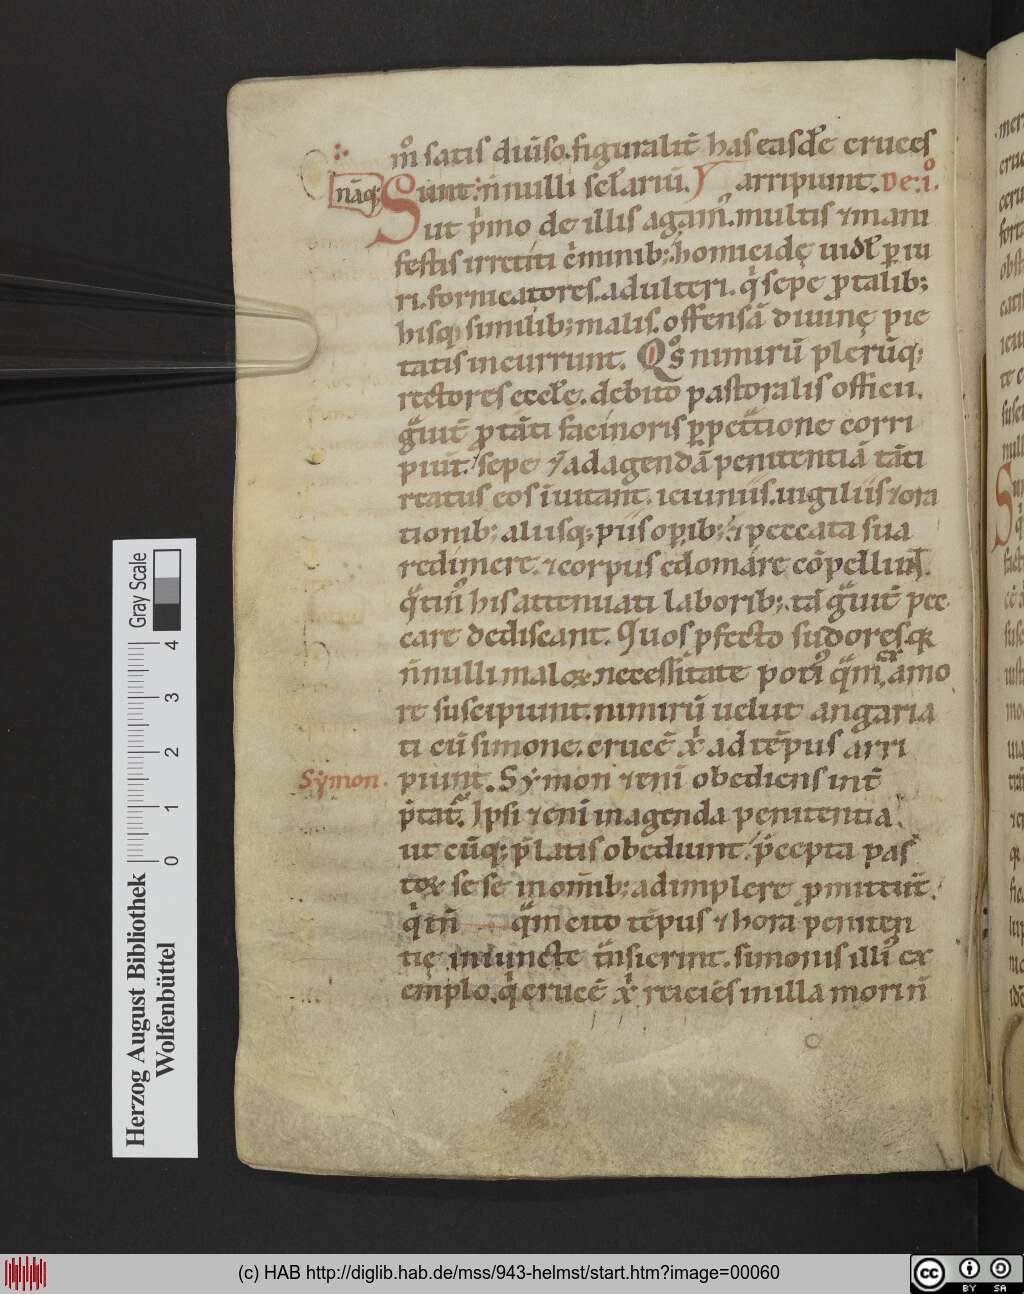 m̊ satis diuīso. figuralit̄ has easdē cruces
nāq;
Sunt: n̄nulli sc̄lariū. arripiunt. De: i̊.
Sut p̍mo de illis agam̄. multis ⁊ mani
festis irretiti c̍minib; homicidę uidꝉ ꝑiu
ri. fornicatores. adulteri. q̍ sepe ꝓ talib;
hisq; similib; malis. offensā diuinę pie
tatis incurrunt. Qͦs nimirū plerūq;
rectores eccłe. debito pastoralis officii.
g̃uit̄ ꝓ tāti facinoris ꝑpet̃tione corri
piūt. sepe ⁊ ad agendā penitentiā tāti
reatus eos īuitant. ieiuniis. uigiliis ⁊ ora
tionib; aliisq; piis oꝑib; ⁊ peccata sua
redimere. ⁊ corpus edomare cōpellunt.
q̃tin̄ his attenuati laborib; tā g̃uit̄ pec
care dediscant. Quos ꝓfecto sudores. qꝛ
n̄nulli maloꝝ necessitate poti̍ q̃m amo
er
re suscipiunt. nimirū uelut angaria
ti cū simone. crucē x̍ ad tēpus arri
Sẏmon.
piunt. Sẏmon ⁊enī obediens int̄
p̍tat̃. Ipsi ⁊enī in agenda penitentia.
ut cūq; p̄latis obediunt. p̄cepta pas
toꝝ sese in om̄ib; adimplere ꝓmittūt.
q̍ tn̄ q̃m cito tēpus ⁊ hora peniten
tię iniuncte t̃nsierint. simonis illi̍ ex
emplo. q̍ crucē x̍ reiciēs in illa morin̄
Herzog August Bibliothek
Wolfenbüttel
0 1 2 3 4
Gray Scale
(c) HAB http://diglib.hab.de/mss/943-helmst/start.htm?image=00060
cc BY SA